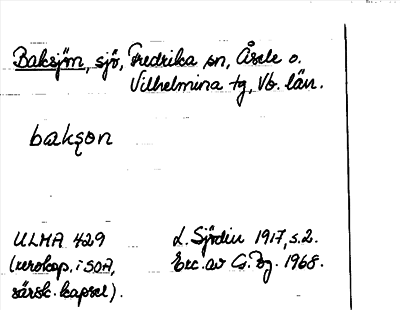 Baksjön, sjö, Fredrika sn, Åsele o.
Vilhelmina tg, Vb. län.
bakʂon
ULMA 429
(xerokop. i SOA,
särsk. kapsel).
L. Sjödin 1917, s.2.
Exc. av G. Bg. 1968.